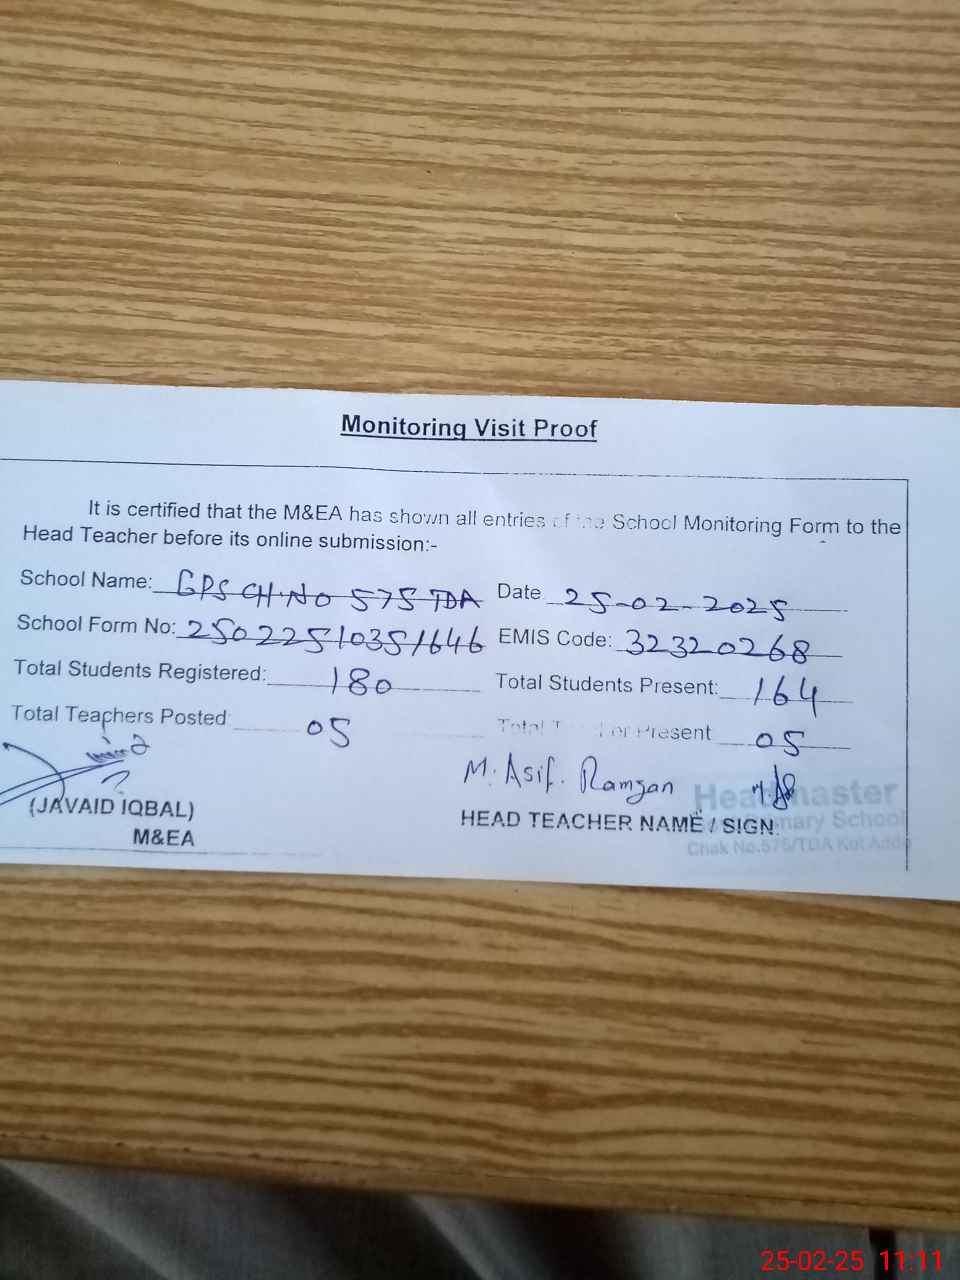 Monitoring Visit Proof
It is certified that the M&EA has shown all entries of the School Monitoring Form to the
Head Teacher before its online submission:-
School Name: GPS CH.No 575 TDA Date 25-02-2025
School Form No: 25022510351646 EMIS Code: 32320268
Total Students Registered: 180 Total Students Present: 164
Total Teachers Posted 05 Total Present 05
M. Asif. Ramzan
(JAVAID IQBAL) HEAD TEACHER NAME / SIGN.
M&EA
Headmaster
Primary School
Chak No.575/TDA Kot Addu
25-02-25 11:11